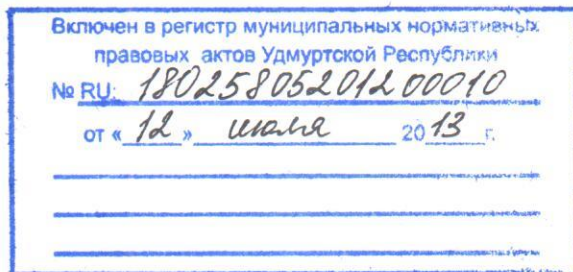 Включен в регистр муниципальных нормативных
правовых актов Удмуртской Республики
№ RU: 18025805201200010
от « 12 » июля 2013 г.